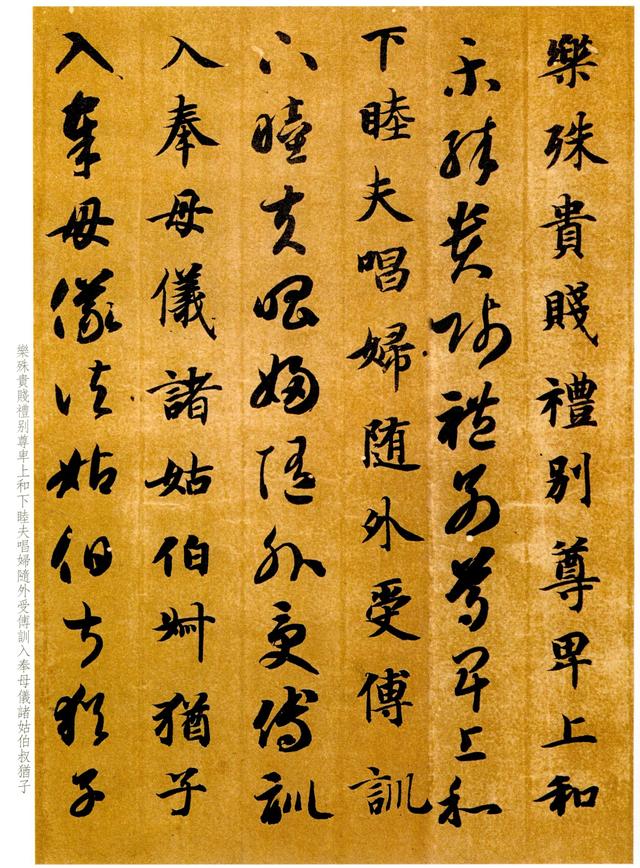 樂殊貴賤禮別尊卑上和
樂殊貴賤禮別尊卑上和
下睦夫唱婦随外受傅訓
下睦夫唱婦随外受傅訓
入奉母儀諸姑伯叔猶子
入奉母儀諸姑伯叔猶子
樂殊貴賤禮別尊卑上和下睦夫唱婦隨外受傅訓入奉母儀諸姑伯叔猶子